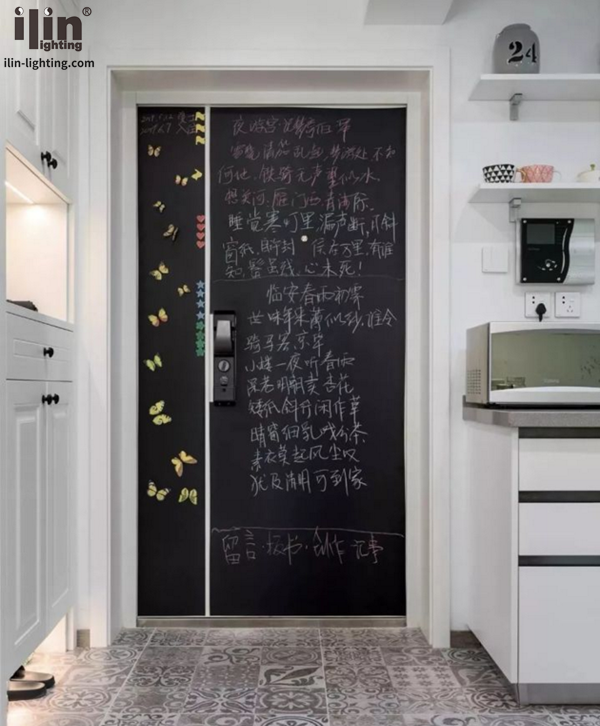 ilin®
lighting
ilin-lighting.com
24
夜游宫·记梦寄
雪晓清笳乱起,梦游处,不知
何地,铁骑无声望似水,
想关河,雁门西,青海际,
睡觉寒灯里,漏声断,月斜
窗纸,自许封侯在万里,有谁
知,鬓虽残,心未死!
临安春雨初霁
世味年来薄似纱,谁令
骑马客京华
小楼一夜听春雨
深巷明朝卖杏花
矮纸斜行闲作草
晴窗细乳戏分茶
素衣莫起风尘叹
犹及清明可到家
留言·板书·创作·记事